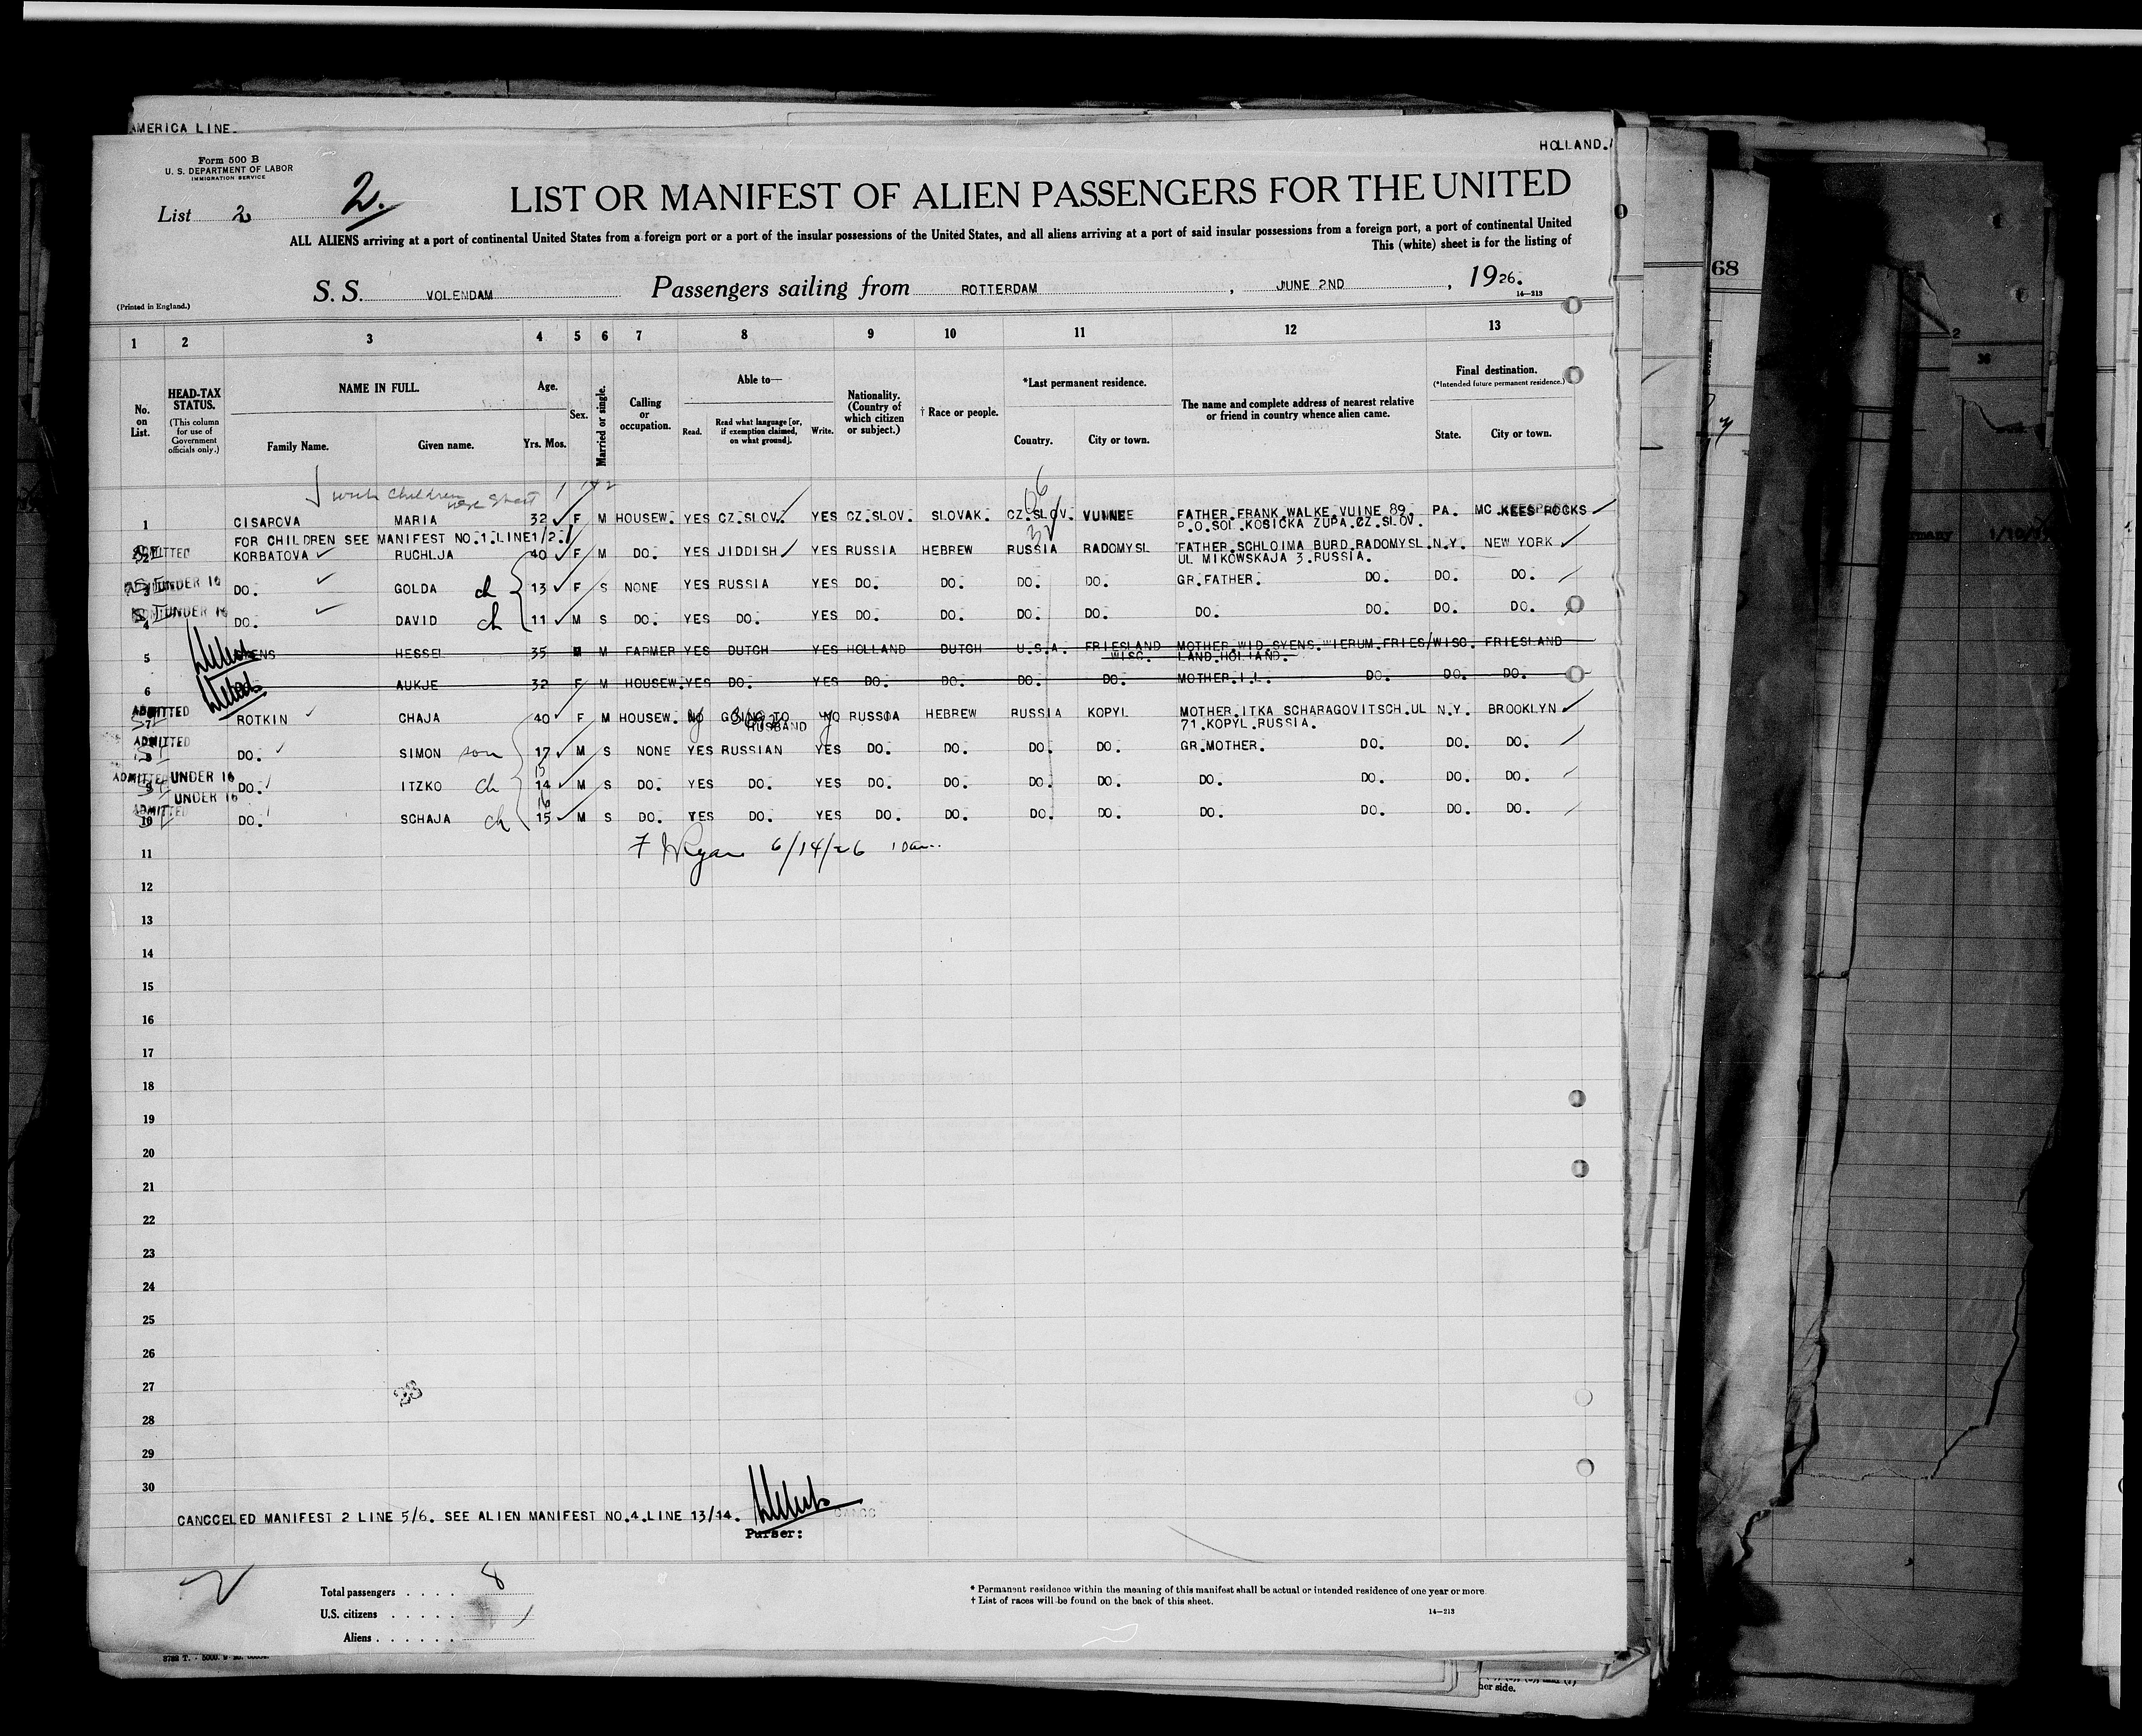 AMERICA LINE.
HOLLAND.
Form 500 B
U. S. DEPARTMENT OF LABOR
IMMIGRATION SERVICE
List 2
2.
LIST OR MANIFEST OF ALIEN PASSENGERS FOR THE UNITED
ALL ALIENS arriving at a port of continental United States from a foreign port or a port of the insular possessions of the United States, and all aliens arriving at a port of said insular possessions from a foreign port, a port of continental United
This (white) sheet is for the listing of
(Printed in England.)
S. S. VOLENDAM Passengers sailing from ROTTERDAM , JUNE 2ND , 1926.
14—213
1 2 3 4 5 6 7 8 9 10 11 12 13
No. on List.
HEAD-TAX STATUS.
(This column for use of Government officials only.)
NAME IN FULL.
Family Name. Given name.
Age.
Yrs. Mos.
Sex.
Married or single.
Calling or occupation.
Able to—
Read. Read what language [or, if exemption claimed, on what ground]. Write.
Nationality. (Country of which citizen or subject.)
† Race or people.
*Last permanent residence.
Country. City or town.
The name and complete address of nearest relative or friend in country whence alien came.
Final destination.
(*Intended future permanent residence.)
State. City or town.
with children
1 CISAROVA MARIA 32 F M HOUSEW. YES CZ.SLOV. YES CZ.SLOV. SLOVAK. CZ.SLOV. FATHER FRANK WALKE VUINE 89. PA. MC KEES ROCKS
P.O.SOL.KOSICKA ZUPA.CZ.SLOV.
FOR CHILDREN SEE MANIFEST NO.1.LINE1/2.
ADMITTED
2 KORBATOVA RUCHLJA 40 F M DO. YES JIDDISH YES RUSSIA HEBREW RUSSIA RADOMYSL FATHER.SCHLOIMA BURD.RADOMYSL. N.Y. NEW YORK
UL MIKOWSKAJA 3.RUSSIA.
UNDER 16
3 DO. GOLDA ch 13 F S NONE YES RUSSIA YES DO. DO. DO. DO. GR.FATHER. DO. DO. DO.
UNDER 16
4 DO. DAVID ch 11 M S DO. YES DO. YES DO. DO. DO. DO. DO. DO. DO. DO.
5 HESSEL 35 M M FARMER YES DUTCH YES HOLLAND DUTCH U.S.A. FRIESLAND MOTHER.WID.SYENS.WIERUM.FRIES/WISC. FRIESLAND
WISC. LAND.HOLLAND.
6 AUKJE 32 F M HOUSEW. YES DO. YES DO. DO. DO. DO. MOTHER.I.L. DO. DO. DO.
ADMITTED
7 ROTKIN CHAJA 40 F M HOUSEW. NO GOING TO NO RUSSIA HEBREW RUSSIA KOPYL MOTHER.ITKA SCHARAGOVITSCH.UL N.Y. BROOKLYN
HUSBAND 71.KOPYL.RUSSIA.
ADMITTED
8 DO. SIMON son 17 M S NONE YES RUSSIAN YES DO. DO. DO. DO. GR.MOTHER. DO. DO. DO.
ADMITTED UNDER 16
9 DO. ITZKO ch 14 M S DO. YES DO. YES DO. DO. DO. DO. DO. DO. DO. DO.
UNDER 16
ADMITTED
10 DO. SCHAJA ch 15 M S DO. YES DO. YES DO. DO. DO. DO. DO. DO. DO. DO.
11 Ryan 6/14/26
12
13
14
15
16
17
18
19
20
21
22
23
24
25
26
27
28
29
30
CANCCELED MANIFEST 2 LINE 5/6. SEE ALIEN MANIFEST NO.4.LINE 13/14.
Purser:
Total passengers . . . . 8
U.S. citizens . . . . .
Aliens . . . . . .
* Permanent residence within the meaning of this manifest shall be actual or intended residence of one year or more.
† List of races will be found on the back of this sheet.
14—213
her side.
68